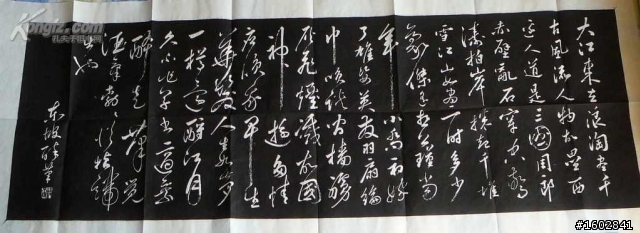 大江東去浪淘盡千
古風流人物故壘西
邊人道是三國周郎
赤壁亂石穿空驚
濤拍岸捲起千堆
雪江山如畫一時多少
豪傑遙想公瑾當
年小喬初嫁
了雄姿英發羽扇綸
巾談笑間檣櫓
灰飛煙滅故國
神遊多情
應笑我早生
華髮人生如夢
一樽還酹江月
久不作草書適乘
醉走筆覺
酒氣勃勃從指端
出也
東坡醉筆
Kongfz.com
#1602841